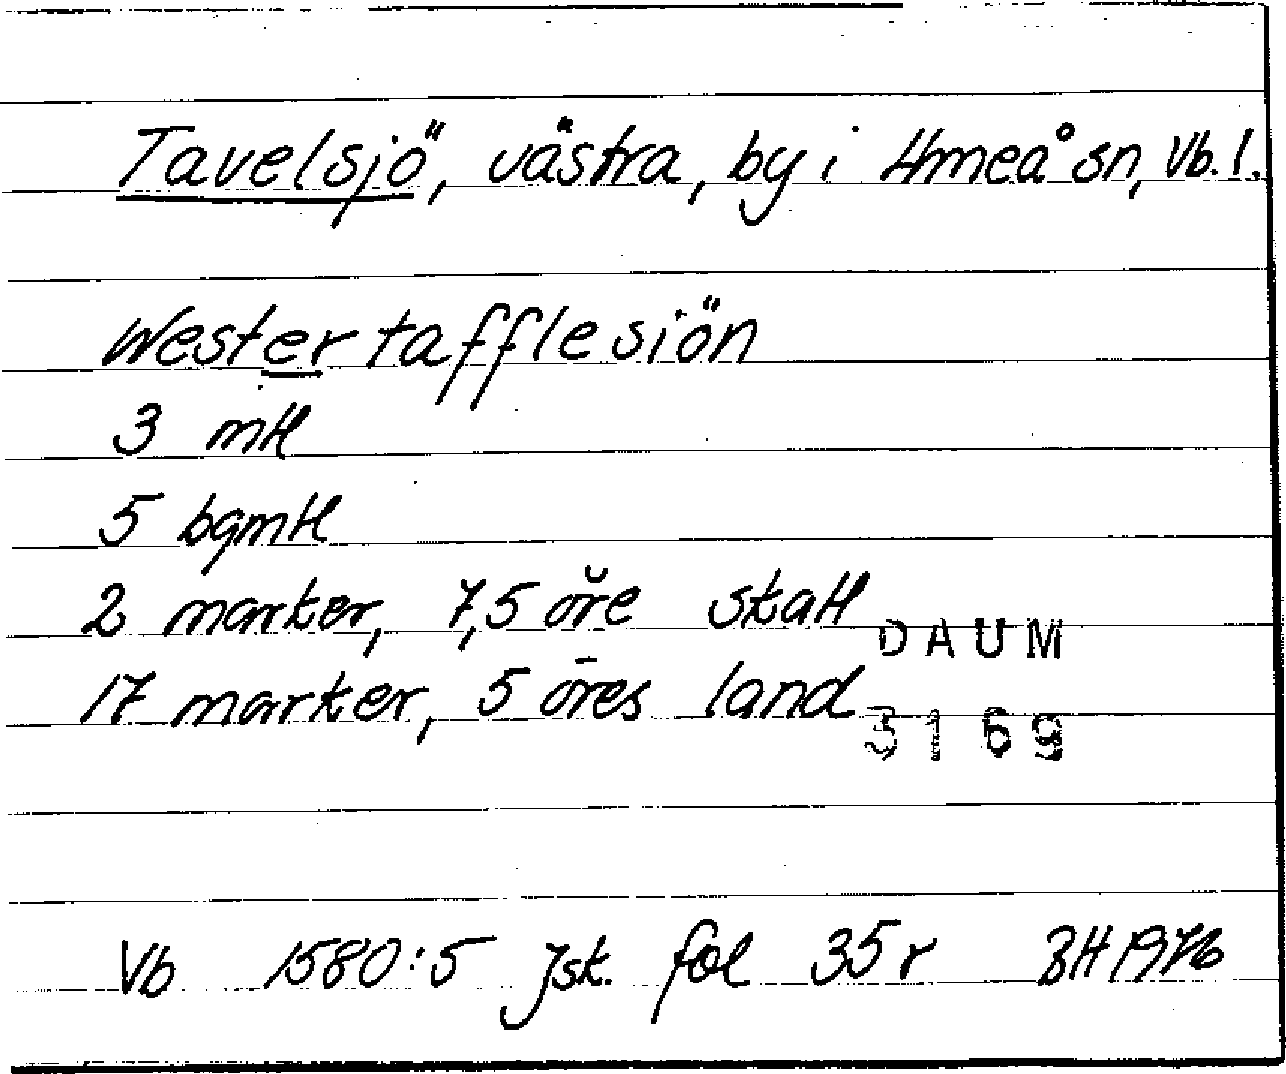 Tavelsjö, västra, by i Umeå sn, Vb. l.
Westertafflesiön
3 mtl
5 bgmtl
2 marker, 7,5 öre skatt
17 marker, 5 öres land
DAUM
3169
Vb 1580:5 Jsk. fol 35 r BH 1976